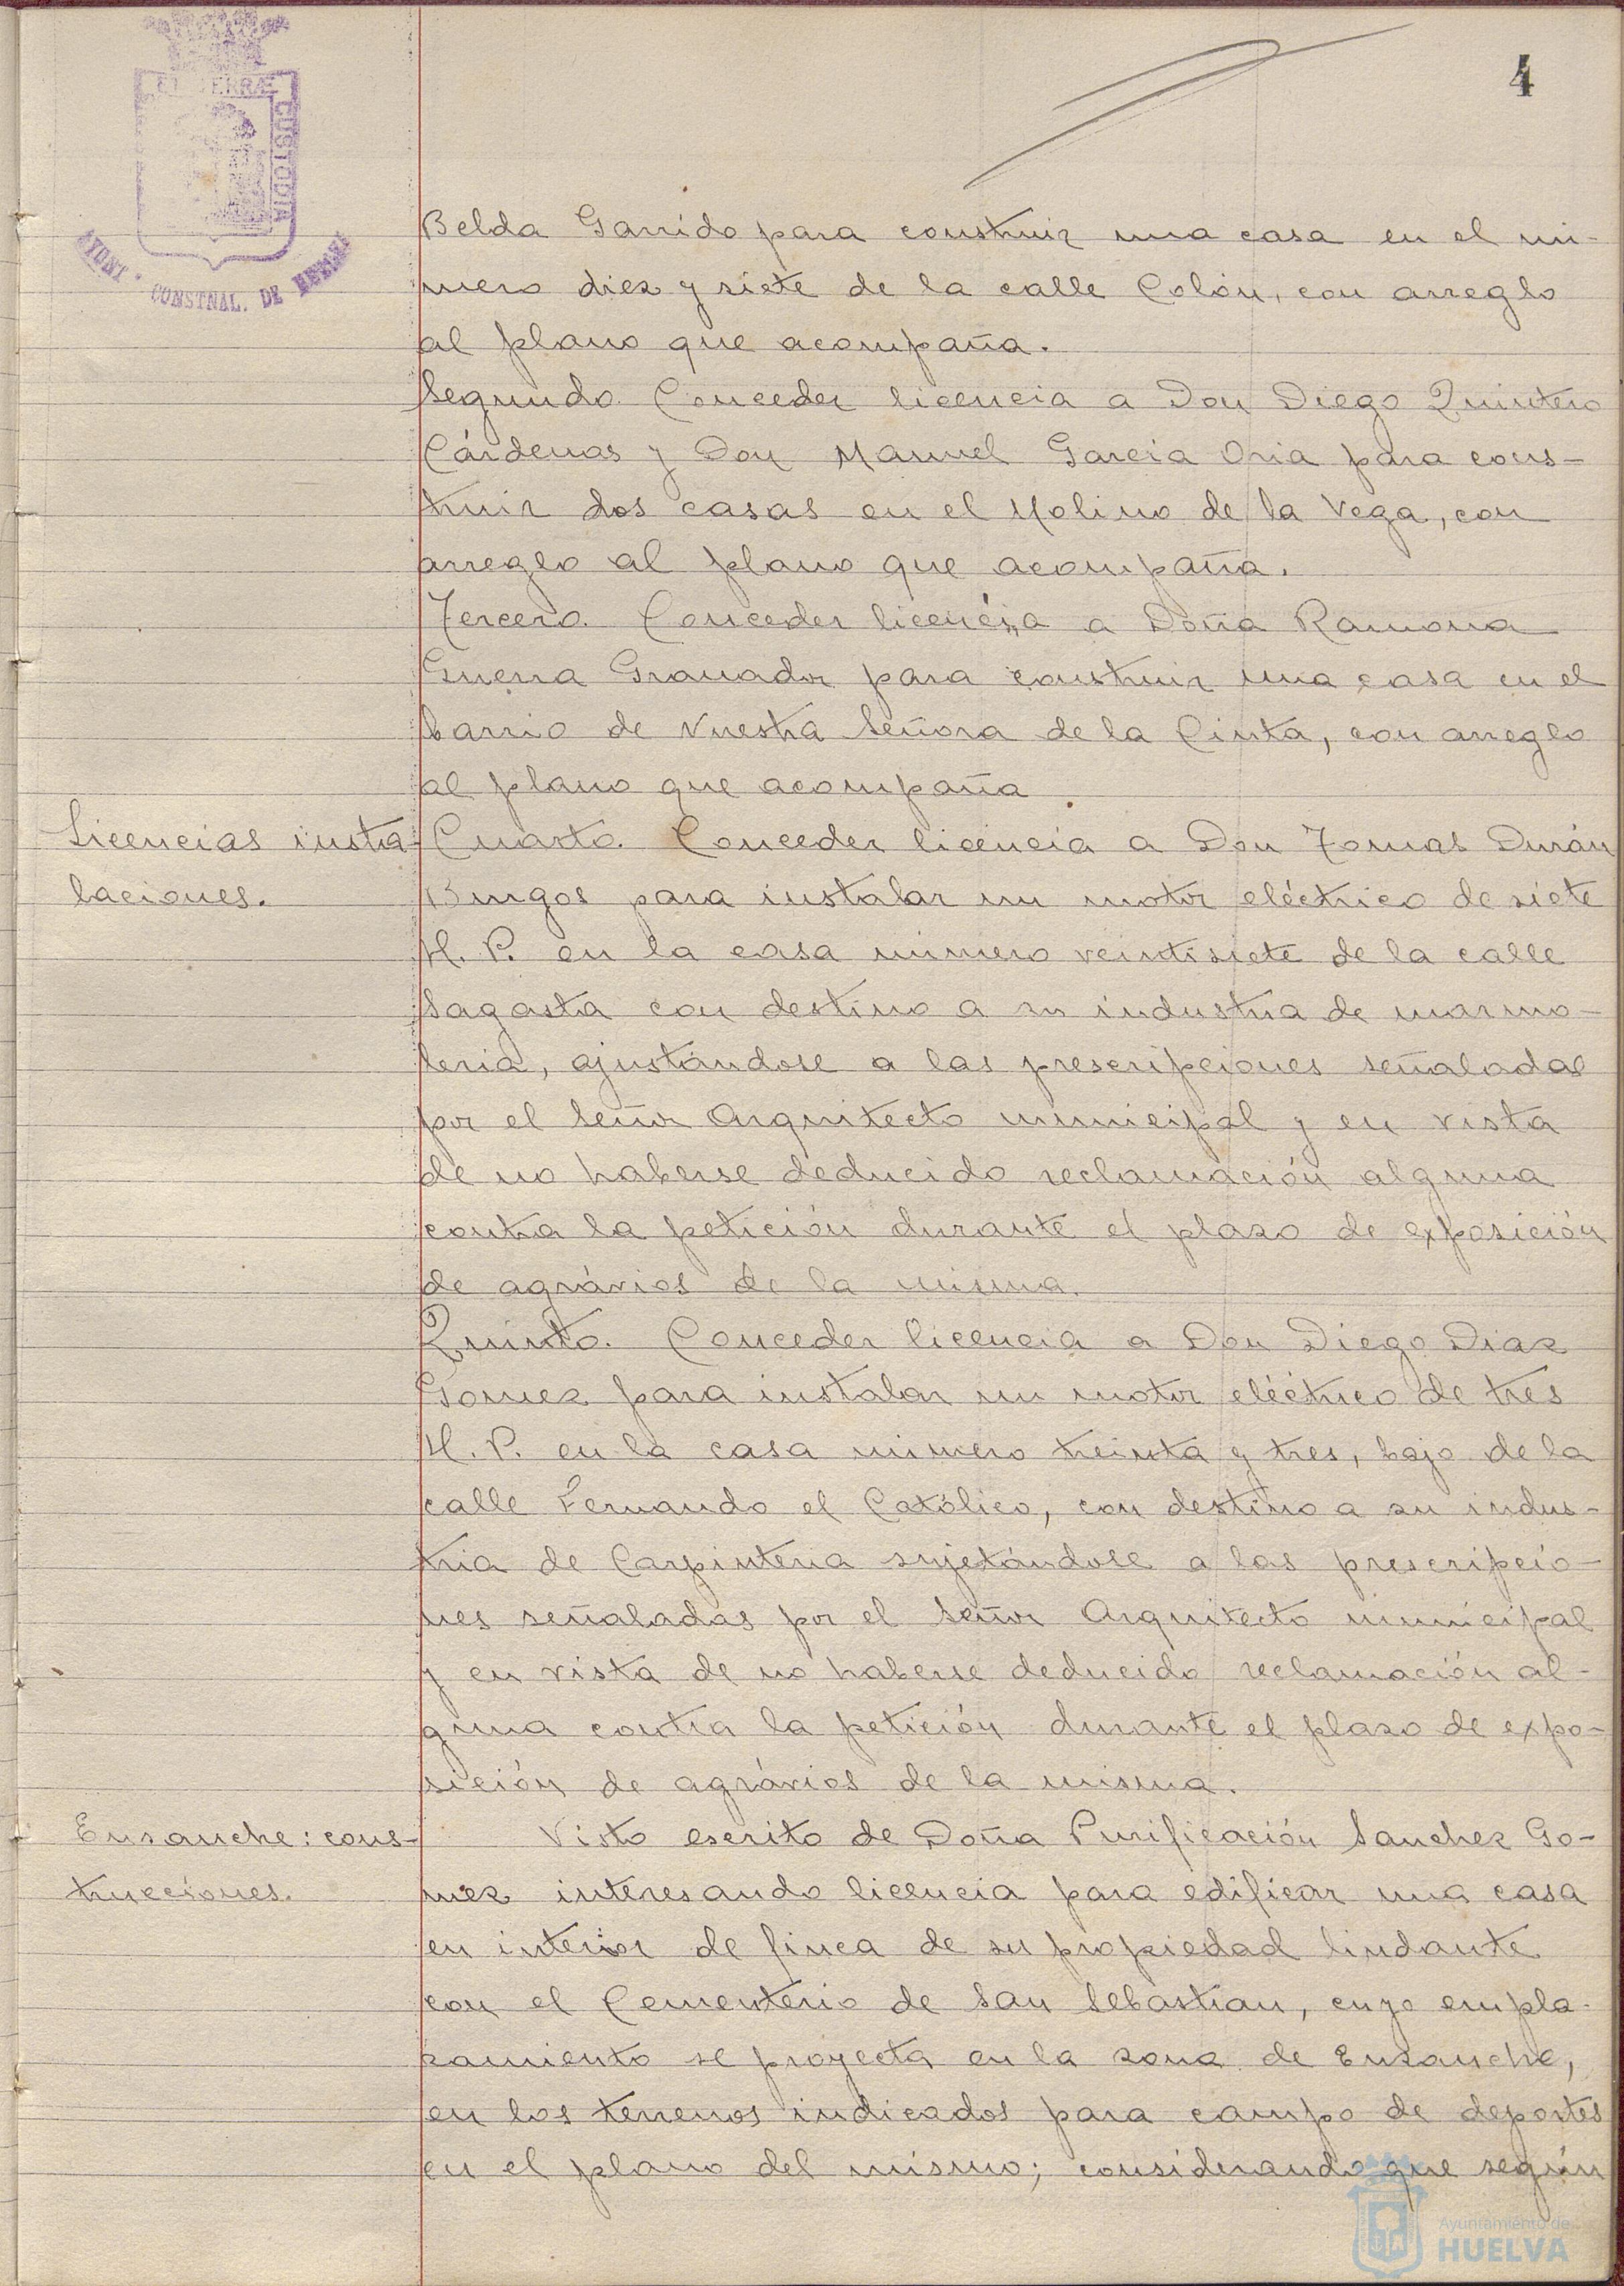 4
PORTUS MARIS ET TERRÆ CUSTODIA
AYUNT. CONSTNAL. DE HUELVA
Belda Garrido para construir una casa en el nú-
mero diez y siete de la calle Colón, con arreglo
al plano que acompaña.
Segundo. Conceder licencia a Don Diego Quintero
Cárdenas y Don Manuel Garcia Oria para cons-
truir dos casas en el Molino de la Vega, con
arreglo al plano que acompaña.
Tercero. Conceder licencia a Doña Ramona
Guerra Granador para construir una casa en el
barrio de Nuestra Señora de la Cinta, con arreglo
al plano que acompaña
Licencias insta-
laciones.
Cuarto. Conceder licencia a Don Tomas Durán
Burgos para instalar un motor eléctrico de siete
H. P. en la casa número veintisiete de la calle
Sagasta con destino a su industria de marmo-
leria, ajustándose a las prescripciones señaladas
por el Señor Arquitecto municipal y en vista
de no haberse deducido reclamación alguna
contra la petición durante el plazo de exposición
de agrávios de la misma.
Quinto. Conceder licencia a Don Diego Diaz
Gomez para instalar un motor eléctrico de tres
H. P. en la casa número treinta y tres, bajo de la
calle Fernando el Católico, con destino a su indus-
tria de Carpinteria sujetándose a las prescripcio-
nes señaladas por el Señor Arquitecto municipal
y en vista de no haberse deducido reclamación al-
guna contra la petición durante el plazo de expo-
sición de agrávios de la misma.
Ensanche: cons-
trucciones.
Visto escrito de Doña Purificación Sanchez Go-
mez interesando licencia para edificar una casa
en interior de finca de su propiedad lindante
con el Cementerio de San Sebastian, cuyo empla-
zamiento se proyecta en la zona de Ensanche,
en los terrenos indicados para campo de deportes
en el plano del mismo; considerando que según
Ayuntamiento de
HUELVA